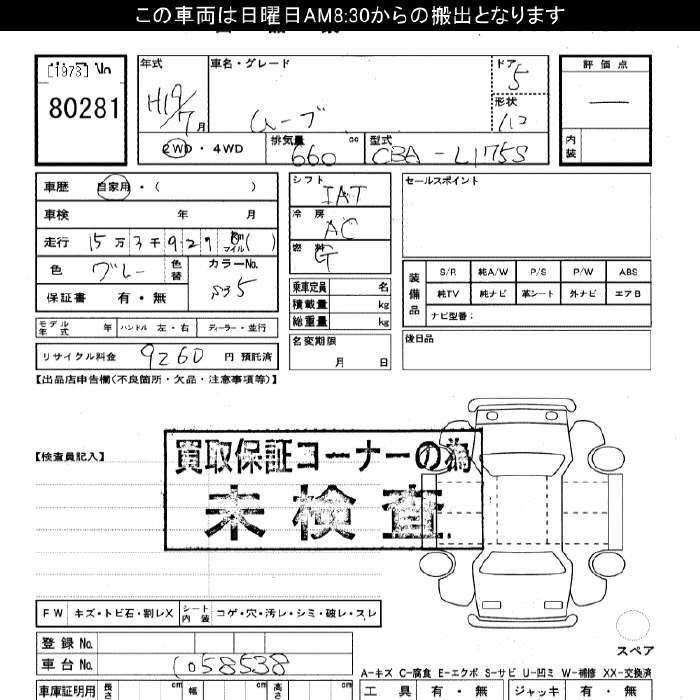 この車両は日曜日AM8:30からの搬出となります
[1973] No
80281
年式 車名・グレード ドア 5 評価点
H19/7月 ムーブ 形状 ー
2WD・4WD 排気量 660 cc 型式 CBA-L175S 内装
車歴 自家用・( )
車検 年 月
走行 15万3千929 Km マイル ( )
色 グレー 色替 カラーNo. S35
保証書 有・無
シフト IAT
冷房 AC
燃料 G
乗車定員 名
積載量 kg
総重量 kg
名変期限 月 日
セールスポイント
装備品 S/R 純A/W P/S P/W ABS
純TV 純ナビ 革シート 外ナビ エアB
ナビ型番:
後日品
モデル年式 年 ハンドル 左・右 ディーラー・並行
リサイクル料金 9260 円 預託済
【出品店申告欄(不良箇所・欠品・注意事項等)】
【検査員記入】
買取保証コーナーの為
未検査
FW キズ・トビ石・割レX シート内装 コゲ・穴・汚レ・シミ・破レ・スレ
登録 No.
車台 No. C058538
スペア
A-キズ C-腐食 E-エクボ S-サビ U-凹ミ W-補修 XX-交換済
車庫証明用 長さ cm 幅 cm 高さ cm
工具 有・無 ジャッキ 有・無